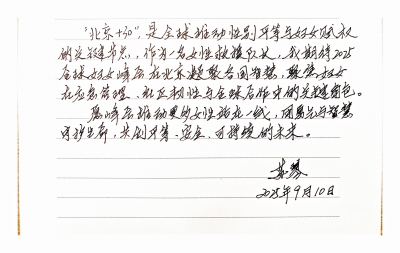 “北京+30”是全球推动性别平等与妇女赋权
的关键节点，作为一名女性救援队长，我期待2025
全球妇女峰会在北京凝聚各国智慧，聚焦妇女
在应急管理、社区韧性与全球合作中的关键角色。
愿峰会推动更多女性站在一线，用勇气与智慧
守护生命，共创平等、安全、可持续的未来。
2025年9月10日